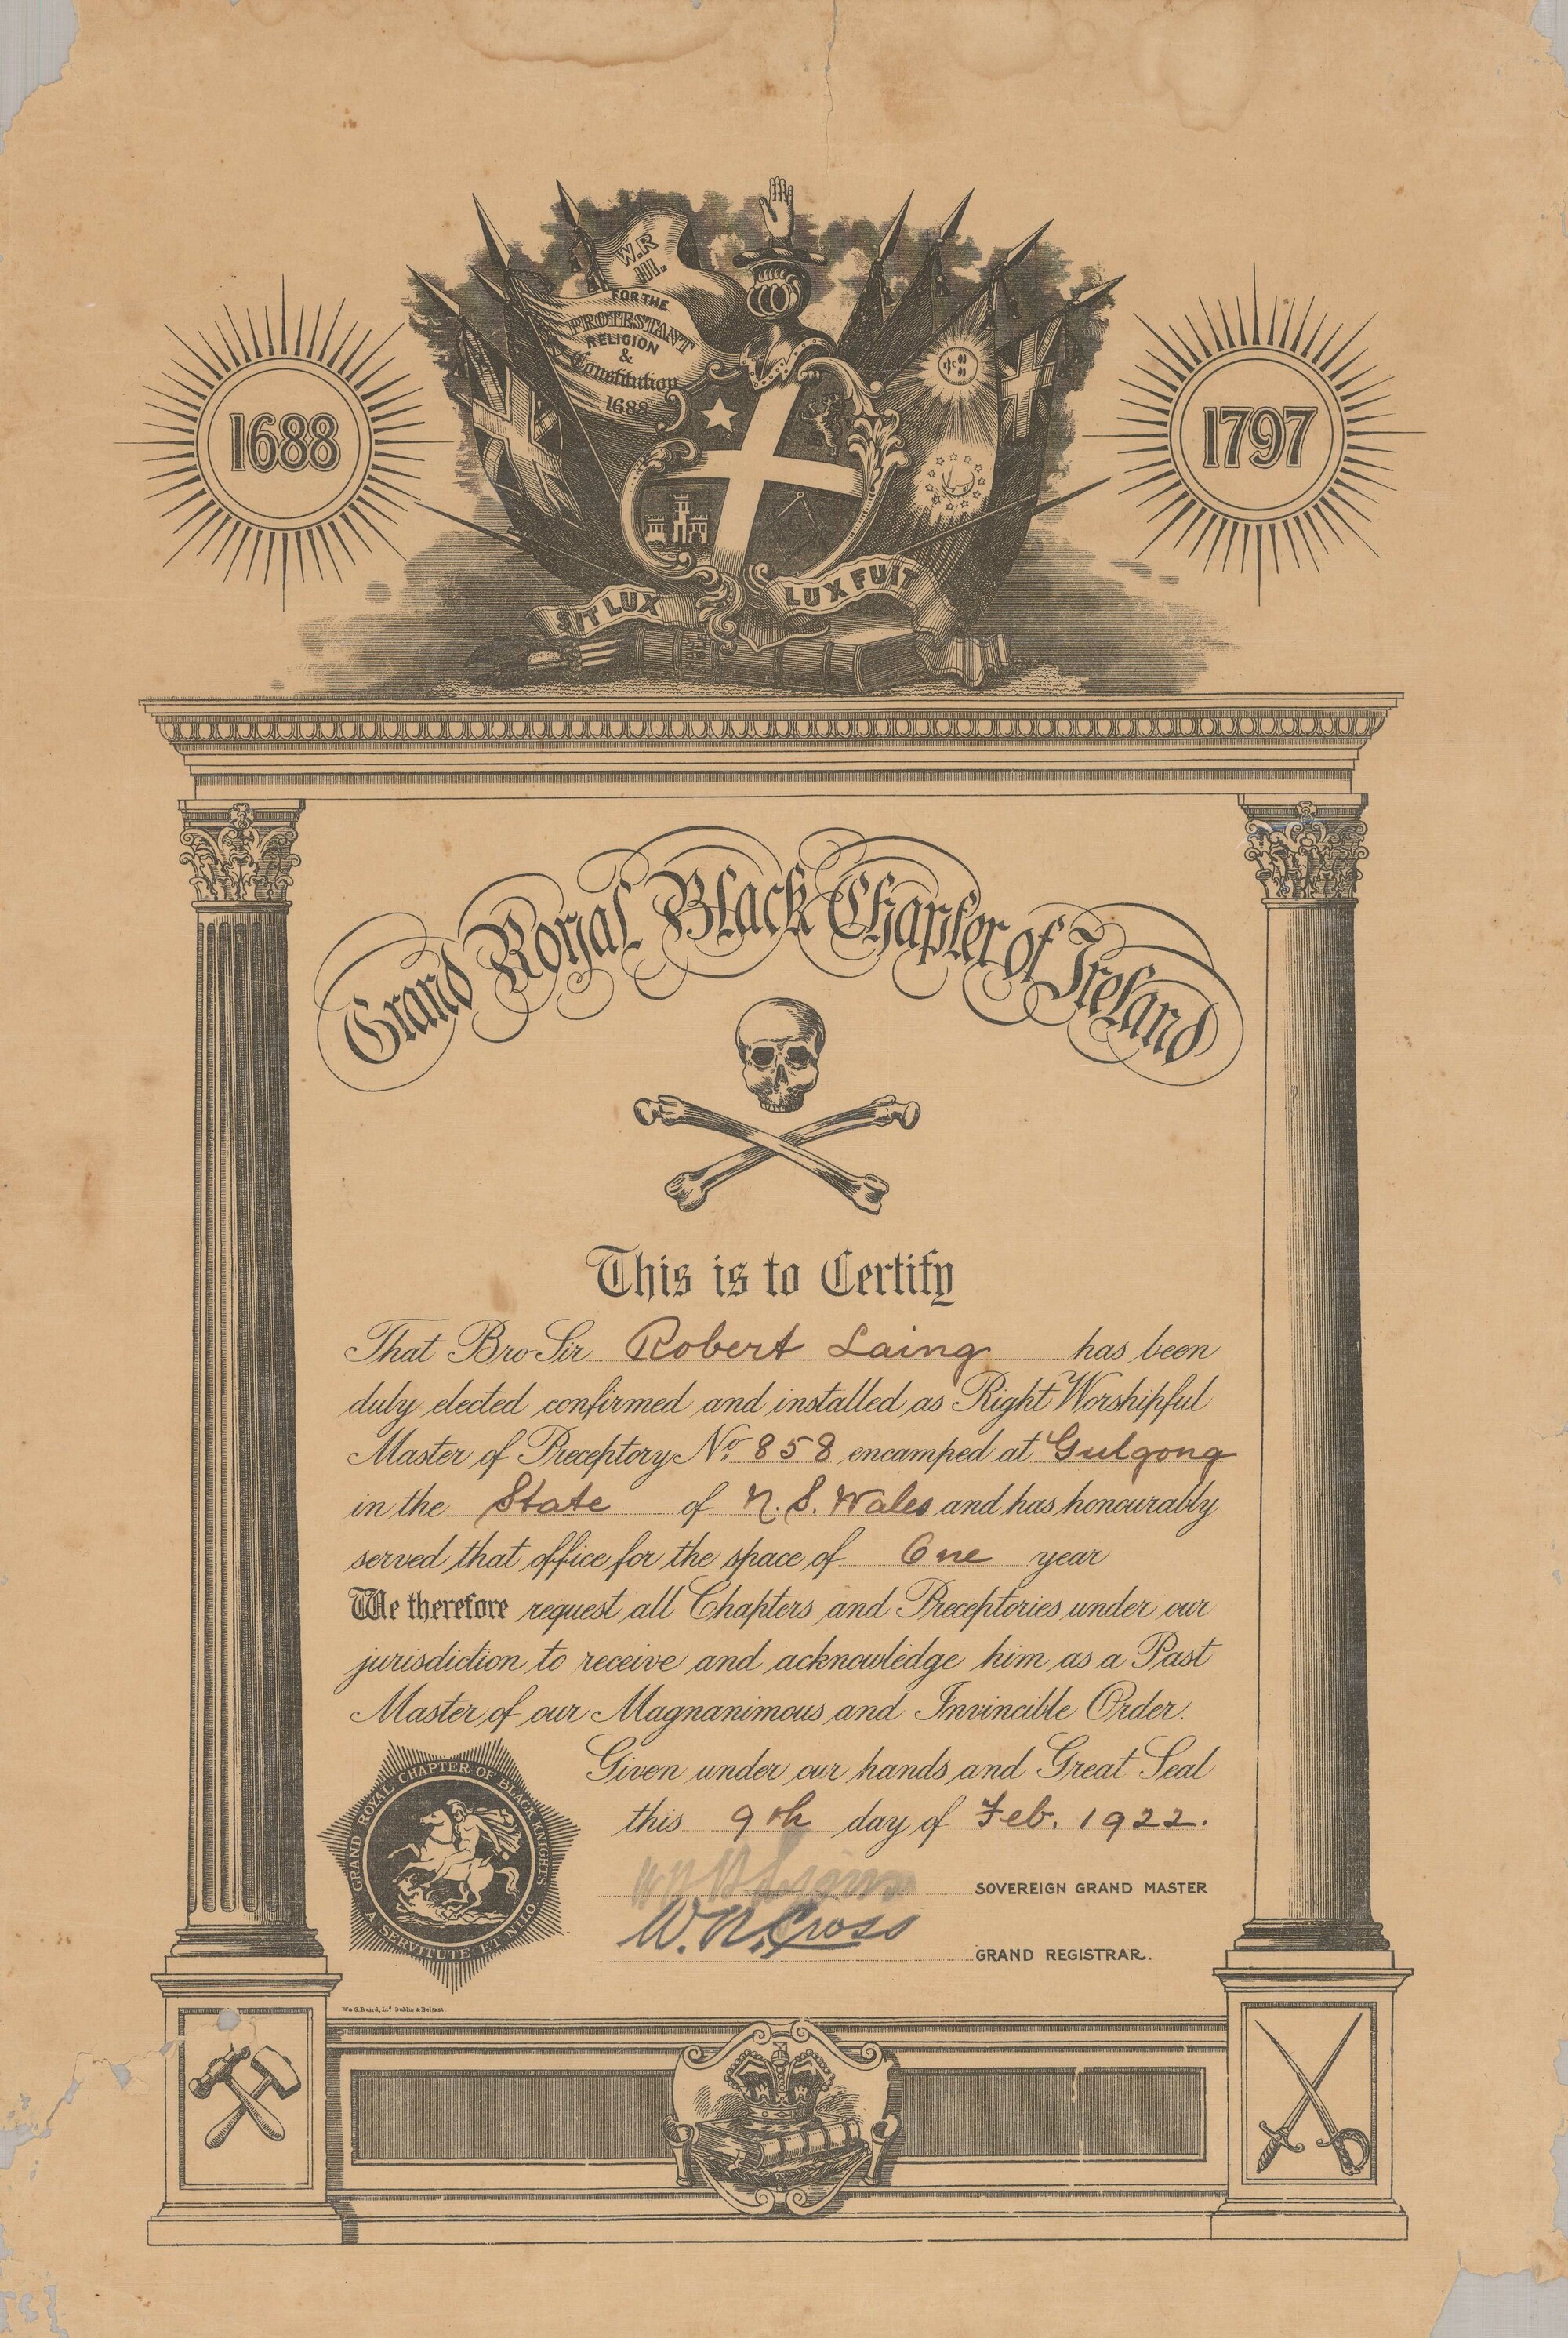 W.R
III.
FOR THE
PROTESTANT
RELIGION
&
Constitution
1688
1688
1797
G
SIT LUX
LUX FUIT
HOLY
BIBLE
Grand Royal Black Chapter of Ireland
This is to Certify
That Bro Sir Robert Laing has been
duly elected confirmed and installed as Right Worshipful
Master of Preceptory No. 858 encamped at Gulgong
in the State of N. S. Wales and has honourably
served that office for the space of One year
We therefore request all Chapters and Preceptories under our
jurisdiction to receive and acknowledge him as a Past
Master of our Magnanimous and Invincible Order.
Given under our hands and Great Seal
this 9th day of Feb. 1922.
GRAND ROYAL CHAPTER OF BLACK KNIGHTS
A SERVITUTE ET NILO
SOVEREIGN GRAND MASTER
W. N. Cross
GRAND REGISTRAR.
W & G. Baird, Ltd Dublin & Belfast.